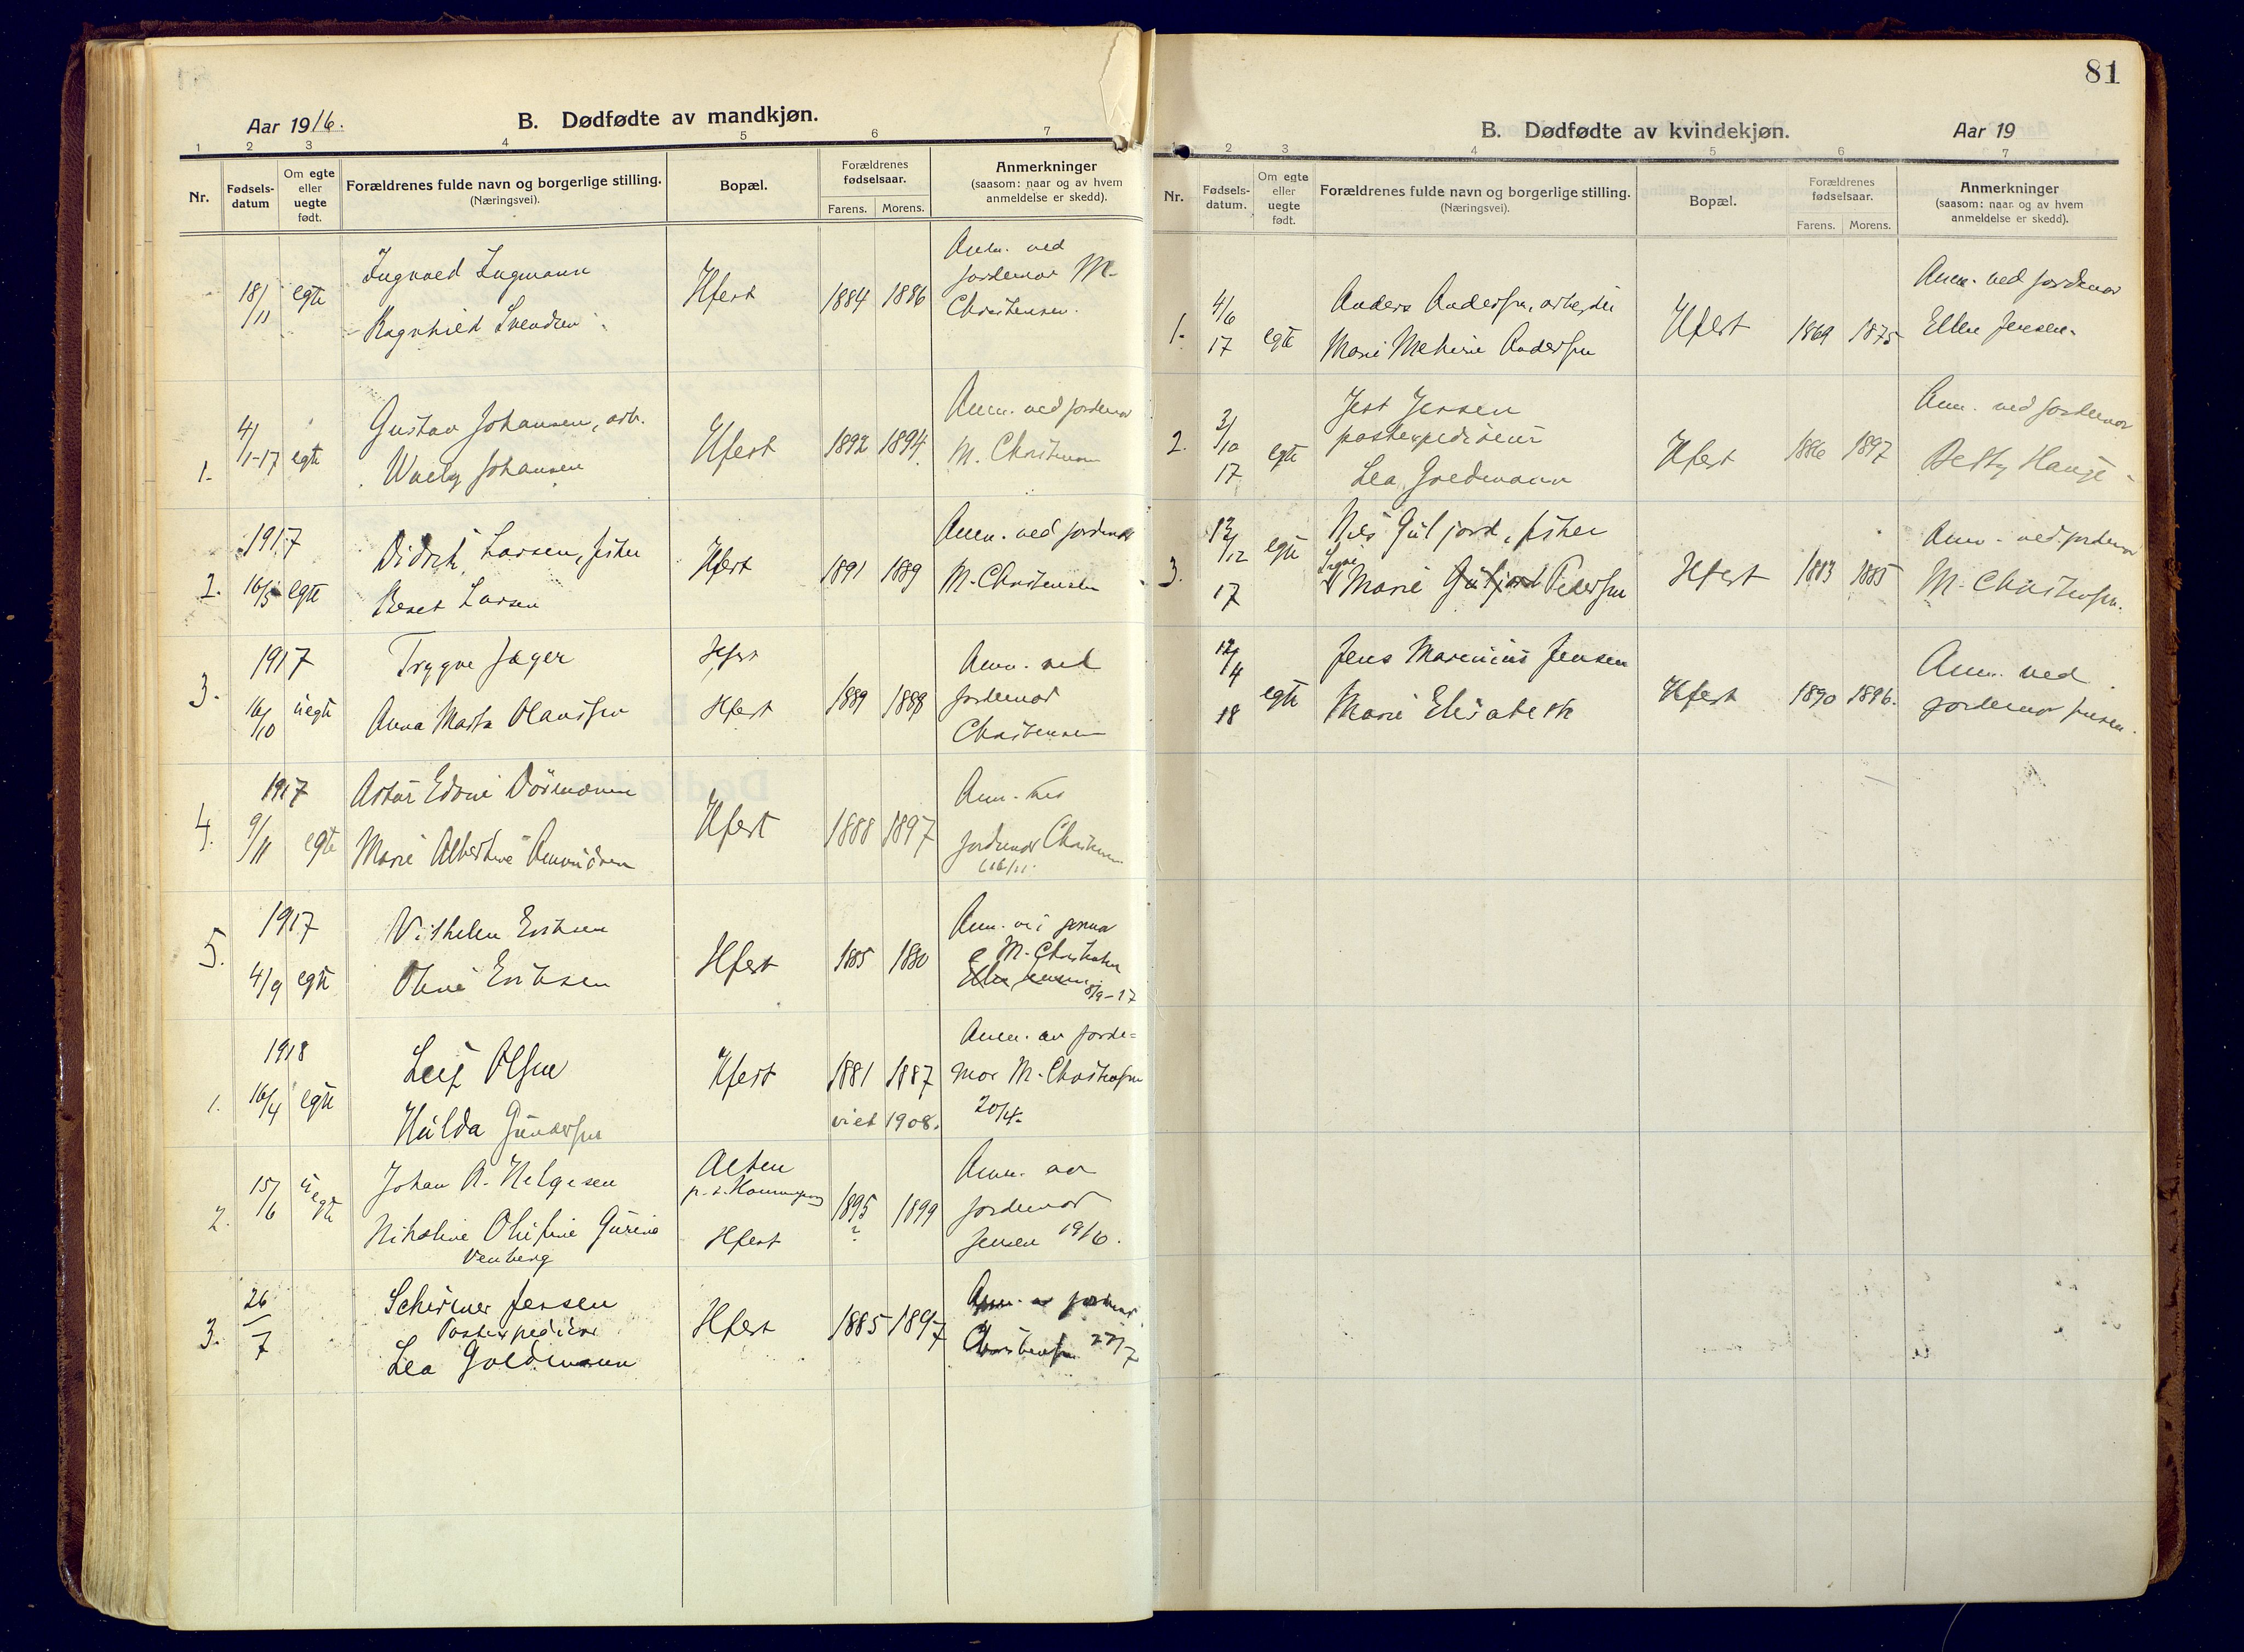 Aar 1916.
B. Dødfødte av mandkjøn.
1 2 3 4 5 6 7
Nr.
Fødsels-
datum
Om egte
eller
uegte
født.
Forældrenes fulde navn og borgerlige stilling.
(Næringsvei).
Bopæl.
Forældrenes
fødselsaar.
Farens. Morens.
Anmerkninger
(saasom: naar og av hvem
anmeldelse er skedd).
18/11 egte
Ingvald Ingmann
Ragnhild Svendsen
Hfest
1884 1886
Anm. ved
jordemor M.
Christensen.
1.
4/1-17 egte
Gustav Johansen, arb.
Johansen
Hfest
1892 1894.
Anm. ved jordemor
M. Christensen
2.
1917
16/5 egte
Didrik Larsen, fisker
Larsen
Hfest
1891 1889
Anm. ved jordemor
M. Christensen
3.
1917
16/10 uegte
Trygve Jæger
Anna Marta Olaussen
Hfest
Hfest
1889 1888
Anm. ved
jordemor
Christensen
4.
1917
9/11 egte
Marie Albertine Amundsen
Hfest
1888 1897
Anm. ved
jordemor Christensen
(16/11.
5.
1917
4/9 egte
Vilhelm Eriksen
Oline Eriksen
Hfest
1885 1880
Anm. ved jormor
M. Christensen
Ellen Jensen 8/9-17
1.
1918
16/4 egte
Leif Olsen
Hulda Gundersen
Hfest
1881 1887
viet 1908.
Anm. av jorde=
mor M. Christensen
20/4.
2.
15/6 uegte
Johan A. Helgesen
Nikoline Olufine Gurine
Venberg
Alten
Hfest
1895 1899
?
Anm. av
jordemor
Jensen 19/6.
3.
26/7
Schirmer Jensen
Postexpeditør
Lea Goldmann
Hfest
1885 1897
Anm. av jordemor
Christensen 27/7
81
B. Dødfødte av kvindekjøn.
Aar 19
1 2 3 4 5 6 7
Nr.
Fødsels-
datum.
Om egte
eller
uegte
født.
Forældrenes fulde navn og borgerlige stilling.
(Næringsvei).
Bopæl.
Forældrenes
fødselsaar.
Farens. Morens.
Anmerkninger
(saasom: naar og av hvem
anmeldelse er skedd).
1.
4/6
17 egte
Anders Andersen, arbeider
Marie Methine Andersen
Hfest
1869 1875
Anm. ved jordemor
Ellen Jensen.
2.
3/10
17 egte
Jest Jensen
postexpeditør
Lea Goldmann
Hfest
1886 1897
Anm. ved jordemor
Betty Hauge.
3.
12/12
17 egte
Nils Guljord, fisker
Signe
Marie Guljord Pedersen
Hfest
1883 1885
Anm. ved jordemor
M. Christensen.
12/4
18 egte
Jens Marenius Jensen
Marie Elisabeth
Hfest
1890 1896.
Anm. ved
jordemor Jensen.